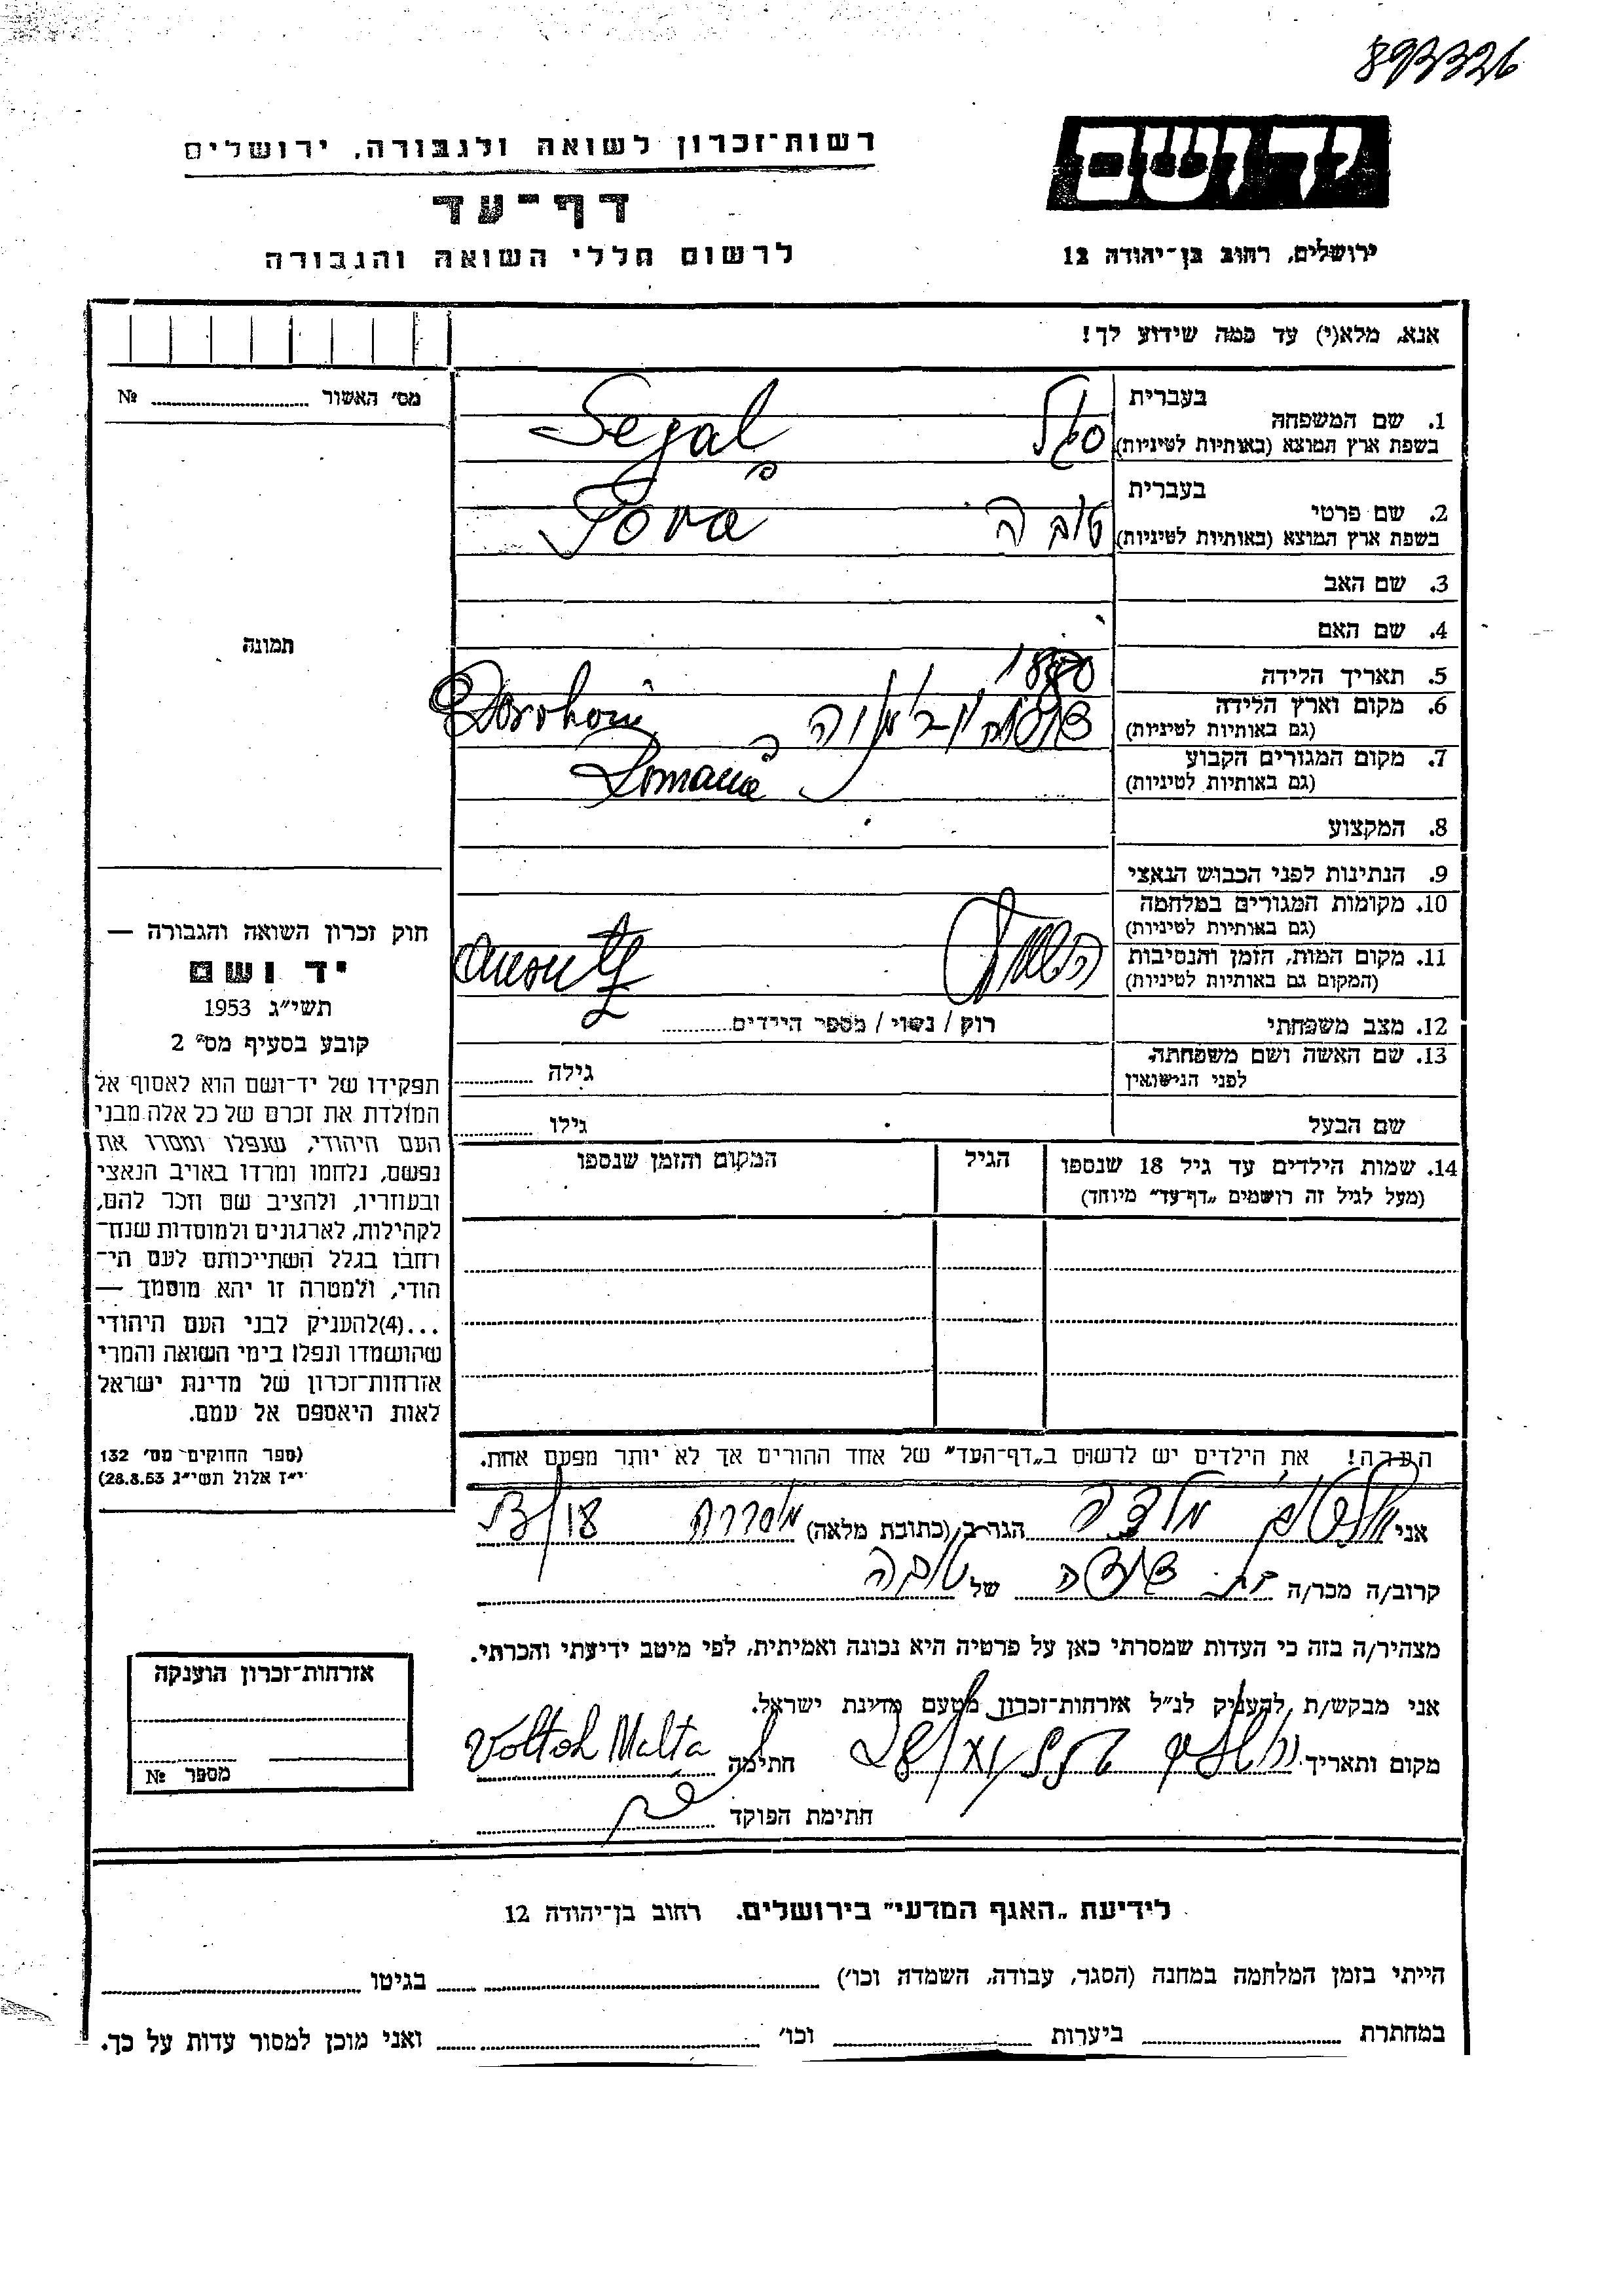 893326
יד ושם
רשות־זכרון לשואה ולגבורה. ירושלים
דף־עד
ירושלים, רחוב בן־יהודה 12
לרשום חללי השואה והגבורה
אנא, מלא(י) עד כמה שידוע לך!
מס׳ האשור № 
בעברית
1. שם המשפחה סגל Segal
בשפת ארץ המוצא (באותיות לטיניות)
בעברית
2. שם פרטי טובה Tova
בשפת ארץ המוצא (באותיות לטיניות)
3. שם האב
4. שם האם
תמונה
5. תאריך הלידה
6. מקום וארץ הלידה Dorohoi
(גם באותיות לטיניות)
7. מקום המגורים הקבוע Romania
(גם באותיות לטיניות)
8. המקצוע
9. הנתינות לפני הכבוש הנאצי
10. מקומות המגורים במלחמה
(גם באותיות לטיניות)
11. מקום המות, הזמן והנסיבות
(המקום גם באותיות לטיניות)
12. מצב משפחתי רוק / נשוי / מספר הילדים
13. שם האשה ושם משפחתה
לפני הנישואין גילה
שם הבעל גילו
14. שמות הילדים עד גיל 18 שנספו הגיל המקום והזמן שנספו
(מעל לגיל זה רושמים „דף־עד״ מיוחד)
חוק זכרון השואה והגבורה —
יד ושם
תשי״ג 1953
קובע בסעיף מס׳ 2
תפקידו של יד־ושם הוא לאסוף אל
המולדת את זכרם של כל אלה מבני
העם היהודי, שנפלו ומסרו את
נפשם, נלחמו ומרדו באויב הנאצי
ובעוזריו, ולהציב שם וזכר להם,
לקהילות, לארגונים ולמוסדות שנח־
רחבו בגלל השתייכותם לעם הי־
הודי, ולמטרה זו יהא מוסמך —
...(4)להעניק לבני העם היהודי
שהושמדו ונפלו בימי השואה והמרי
אזרחות־זכרון של מדינת ישראל
לאות היאספם אל עמם.
(ספר החוקים מס׳ 132
י״ז אלול תשי״ג 28.8.53)
הערה! את הילדים יש לרשום ב„דף־העד״ של אחד ההורים אך לא יותר מפעם אחת.
אני מלצה הגר ב (כתובת מלאה)
קרוב/ה מכר/ה בת דודה של טובה
מצהיר/ה בזה כי העדות שמסרתי כאן על פרטיה היא נכונה ואמיתית, לפי מיטב ידיעתי והכרתי.
אני מבקש/ת להעניק לנ״ל אזרחות־זכרון מטעם מדינת ישראל.
מקום ותאריך חתימה Voltoh Malta
חתימת הפוקד
אזרחות־זכרון הוענקה
מספר №
לידיעת „האגף המדעי״ בירושלים. רחוב בן־יהודה 12
הייתי בזמן המלחמה במחנה (הסגר, עבודה, השמדה וכו׳) בגיטו
במחתרת ביערות וכו׳ ואני מוכן למסור עדות על כך.